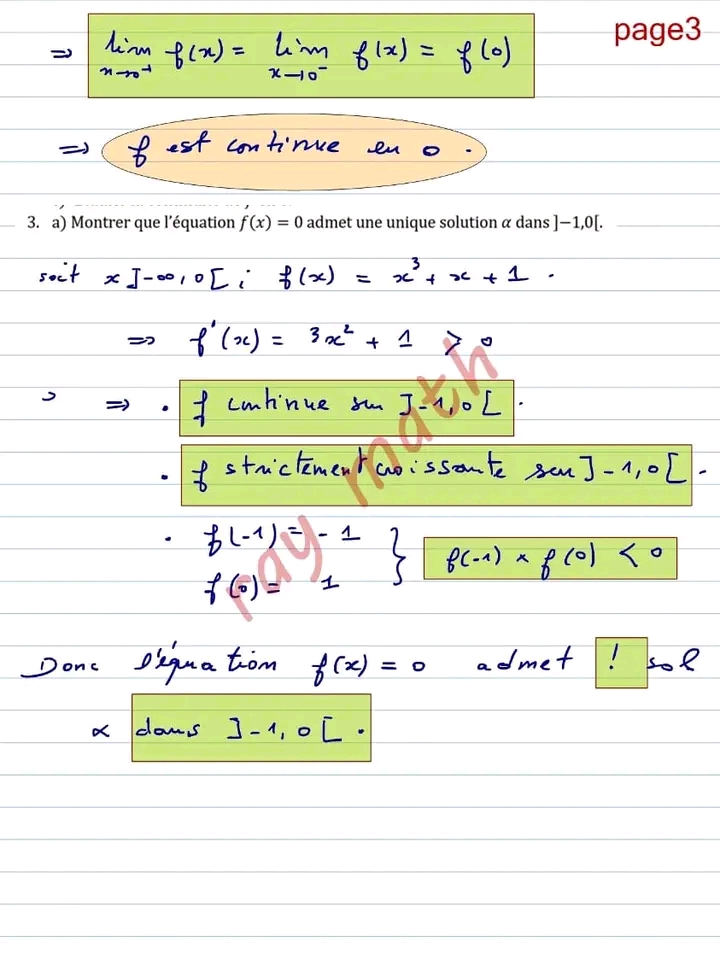 page3
⇒ lim f(x) = lim f(x) = f(0)
x→0⁺ x→0⁻
⇒ f est continue en 0 .
3. a) Montrer que l'équation f(x) = 0 admet une unique solution α dans ]−1,0[.
soit x ]-∞, 0[ ; f(x) = x³ + x + 1 .
⇒ f'(x) = 3x² + 1 > 0
⇒ . f continue sur ]-1, 0[ .
. f strictement croissante sur ]-1, 0[ .
. f(-1) = - 1
f(0) = 1
} f(-1) × f(0) < 0
Donc l'équation f(x) = 0 admet ! sol
α dans ]-1, 0[ .
ray math